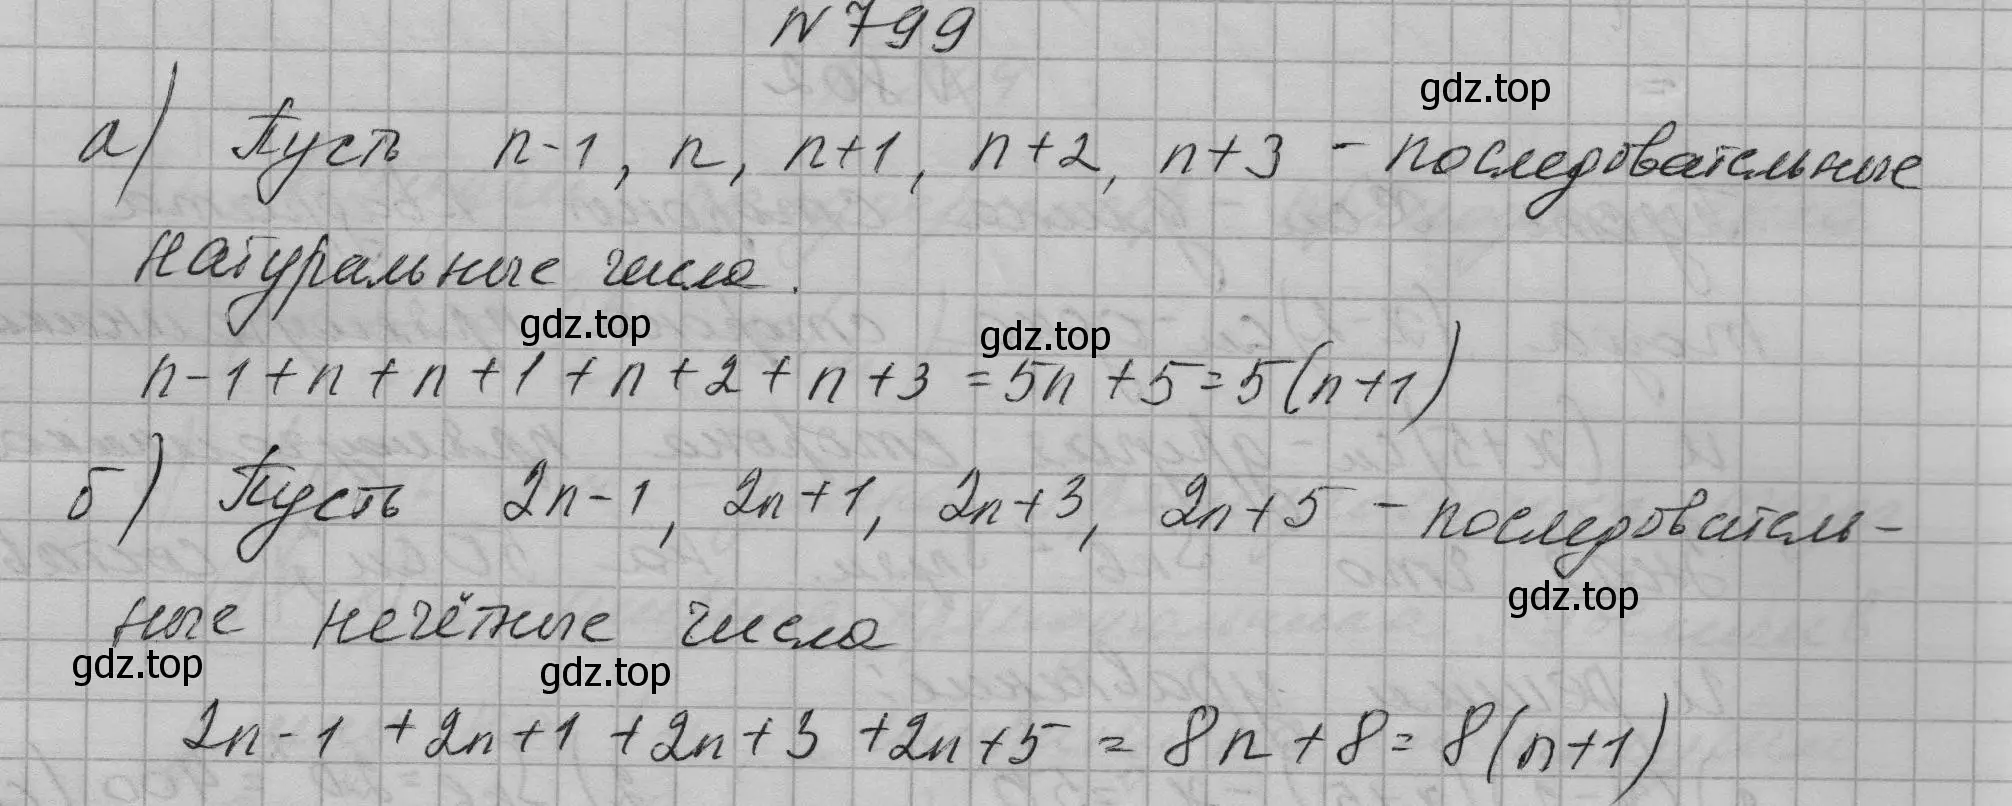 N 799
gdz.top
а) Пусть n-1, n, n+1, n+2, n+3 - последовательные
натуральные числа.
gdz.top gdz.top
n-1+n+n+1+n+2+n+3 = 5n+5 = 5(n+1)
б) Пусть 2n-1, 2n+1, 2n+3, 2n+5 - последователь-
gdz.top
ные нечётные числа
gdz.top gdz.top
2n-1 +2n+1 +2n+3 +2n+5 = 8n+8 = 8(n+1)